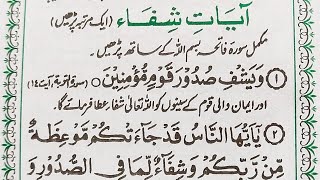 آیاتِ شفاء (ایک مرتبہ پڑھیں)
مکمل سورۂ فاتحہ بسم اللہ کے ساتھ پڑھیں۔
① وَيَشْفِ صُدُوْرَ قَوْمٍ مُّؤْمِنِيْنَ ○ (سورۃ التوبۃ، آیت ۱۴)
اور ایمان والی قوم کے سینوں کو اللہ تعالیٰ شفاء عطا فرمائے گا
② يٰٓاَيُّهَا النَّاسُ قَدْ جَآءَتْكُمْ مَّوْعِظَةٌ
مِّنْ رَّبِّكُمْ وَشِفَآءٌ لِّمَا فِى الصُّدُوْرِ وَ